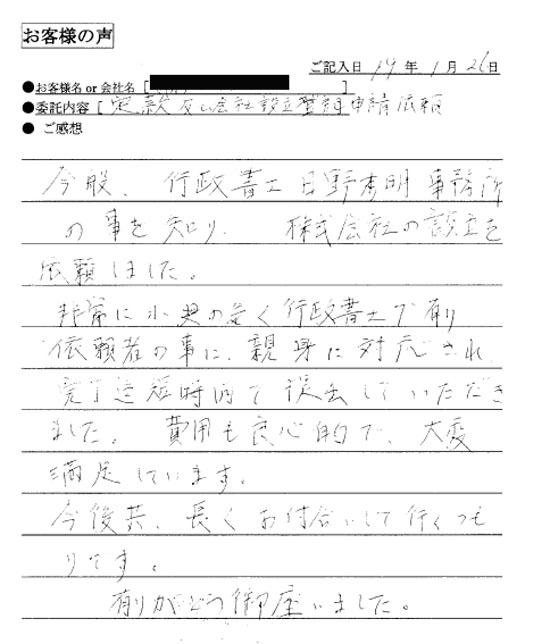 お客様の声
ご記入日 19年1月26日
●お客様名 or 会社名 [ ]
●委託内容 [定款及び会社設立登記申請依頼
● ご感想
今般、行政書士日野孝明事務所
の事を知り、株式会社の設立を
依頼しました。
非常に小黒の無く行政書士で有り
依頼者の事に、親身に対応され
完了迄短時間で提出していただき
ました。費用も良心的で、大変
満足しています。
今後共、長くお付合いして行くつも
りです。
有りがとう御座いました。